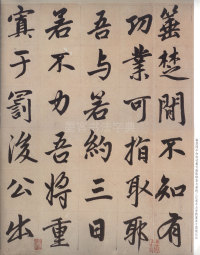 箠楚間不知有
功業可指取耶
吾與若約三日
若不力吾將重
寘于罰後公出